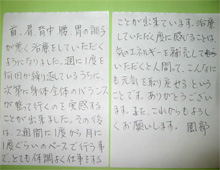 首、肩、背中、腰、胃の辺り
が悪く治療をしていただく
ようになりました。週に1度を
何回か繰り返しているうちに、
次第に身体全体のバランス
が整って行くのを実感する
ことが出来ました。その後
は、2週間に1度から月に
1度くらいのペースで行う事
で、とても体調よく仕事をする
ことが出来ています。治療
していただく度に感じることは、
気のエネルギーを補充して
いただくと人間って、こんなに
も元気を取り戻せるという
ことです。ありがとうござい
ます。また、これからもよろし
くお願いします。